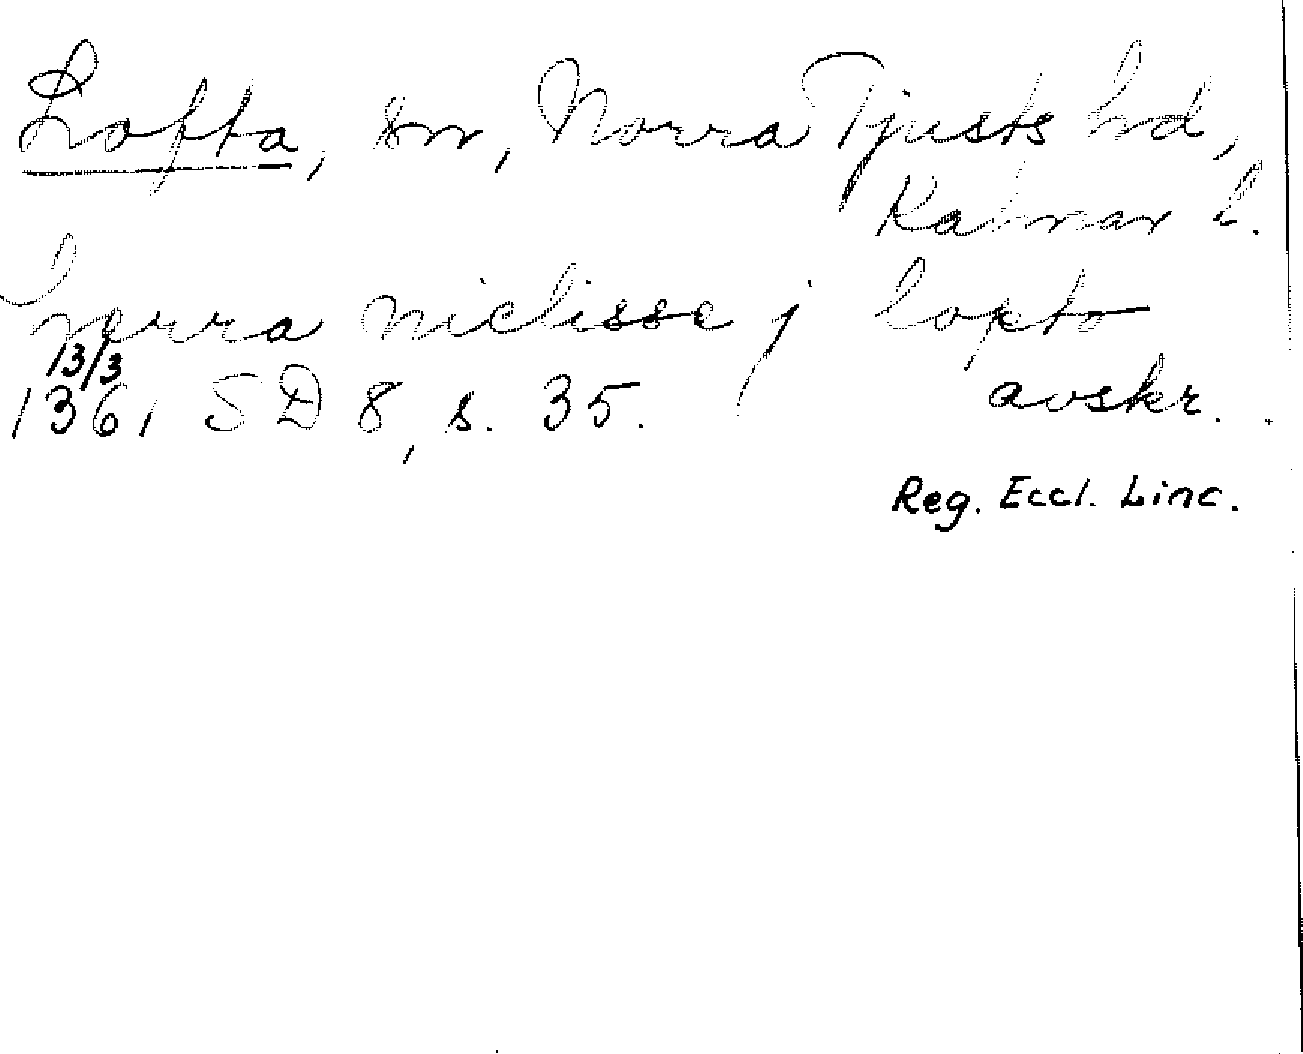 Lofta, sn, Norra Tjusts hd,
Kalmar l.
herra niclisse j lopto
13/3
1361 SD 8, s. 35. avskr.
Reg. Eccl. Linc.